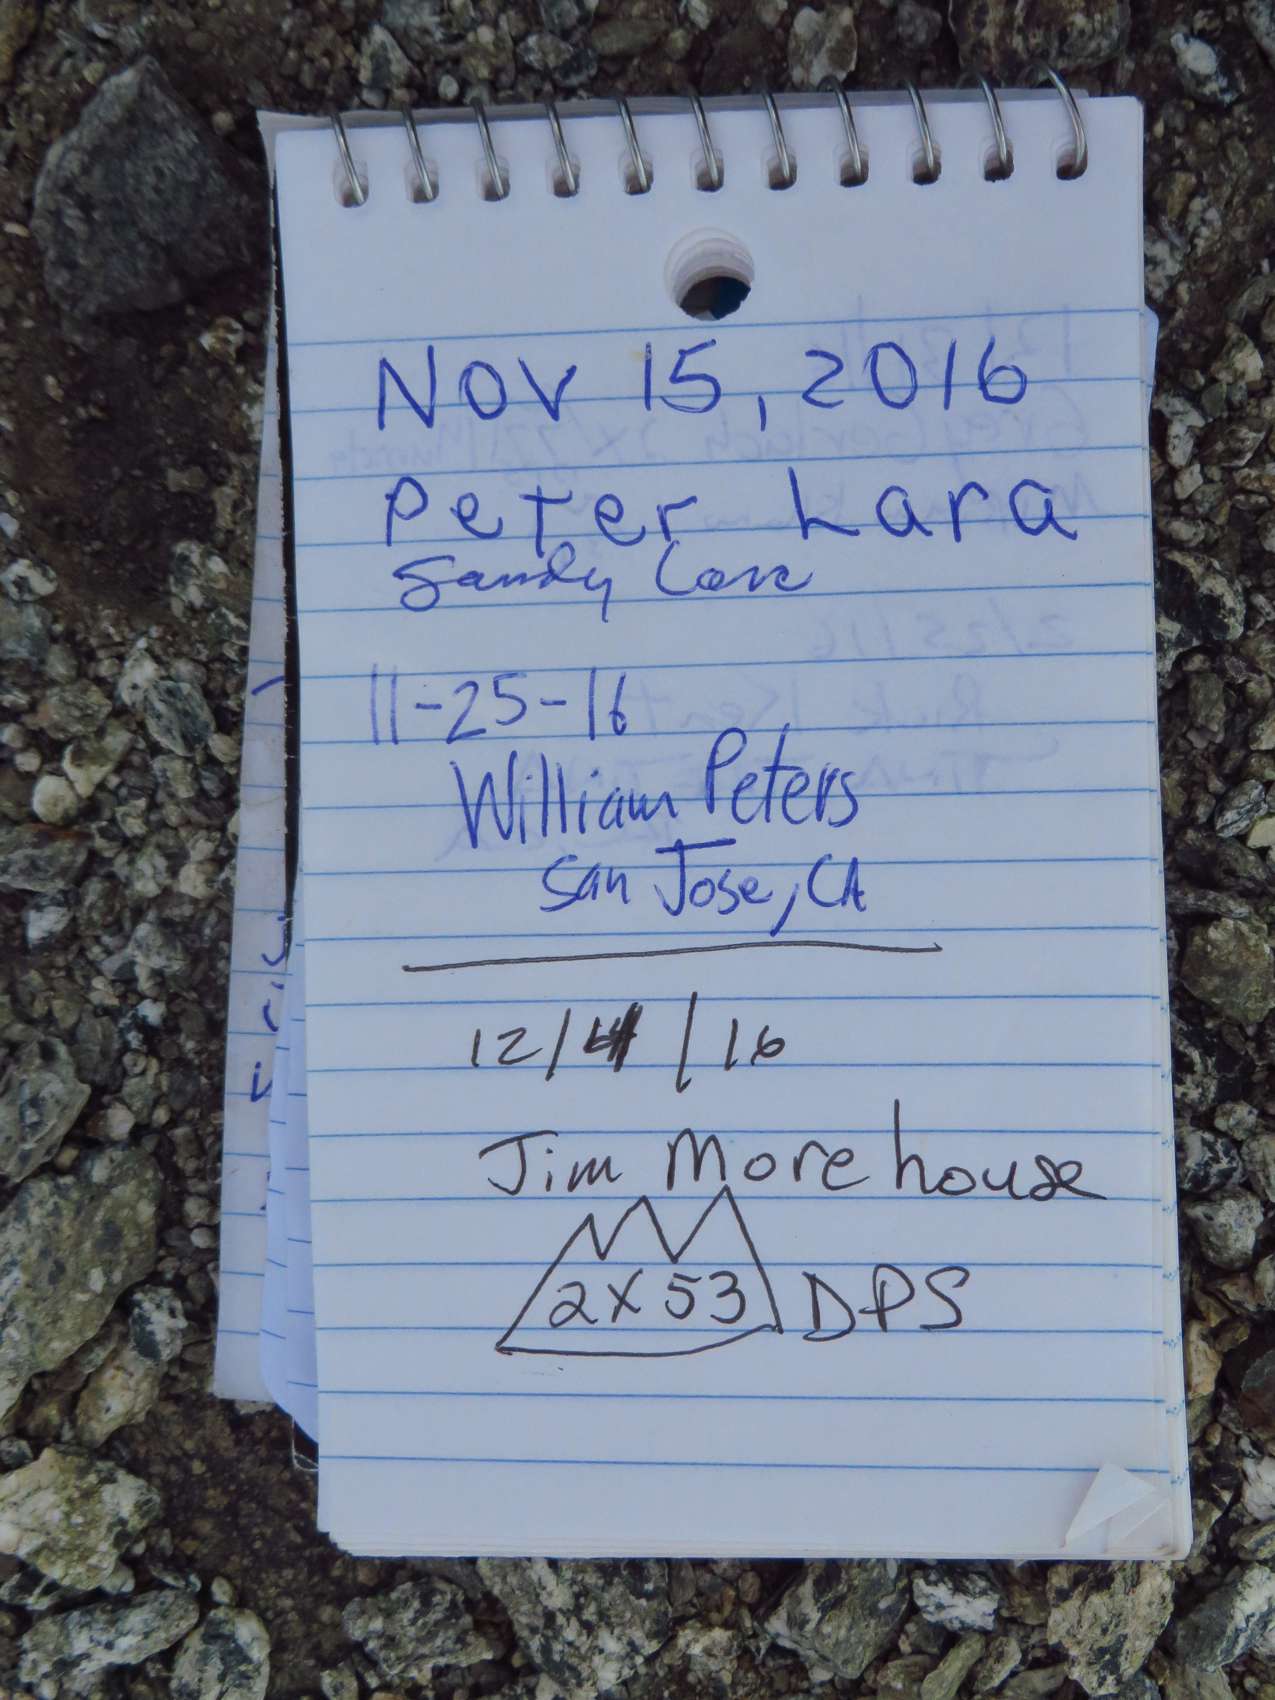 Nov 15, 2016
Peter Lara
Sandy Lara
11-25-16
William Peters
San Jose, CA
12/4/16
Jim Morehouse
2X53 DPS